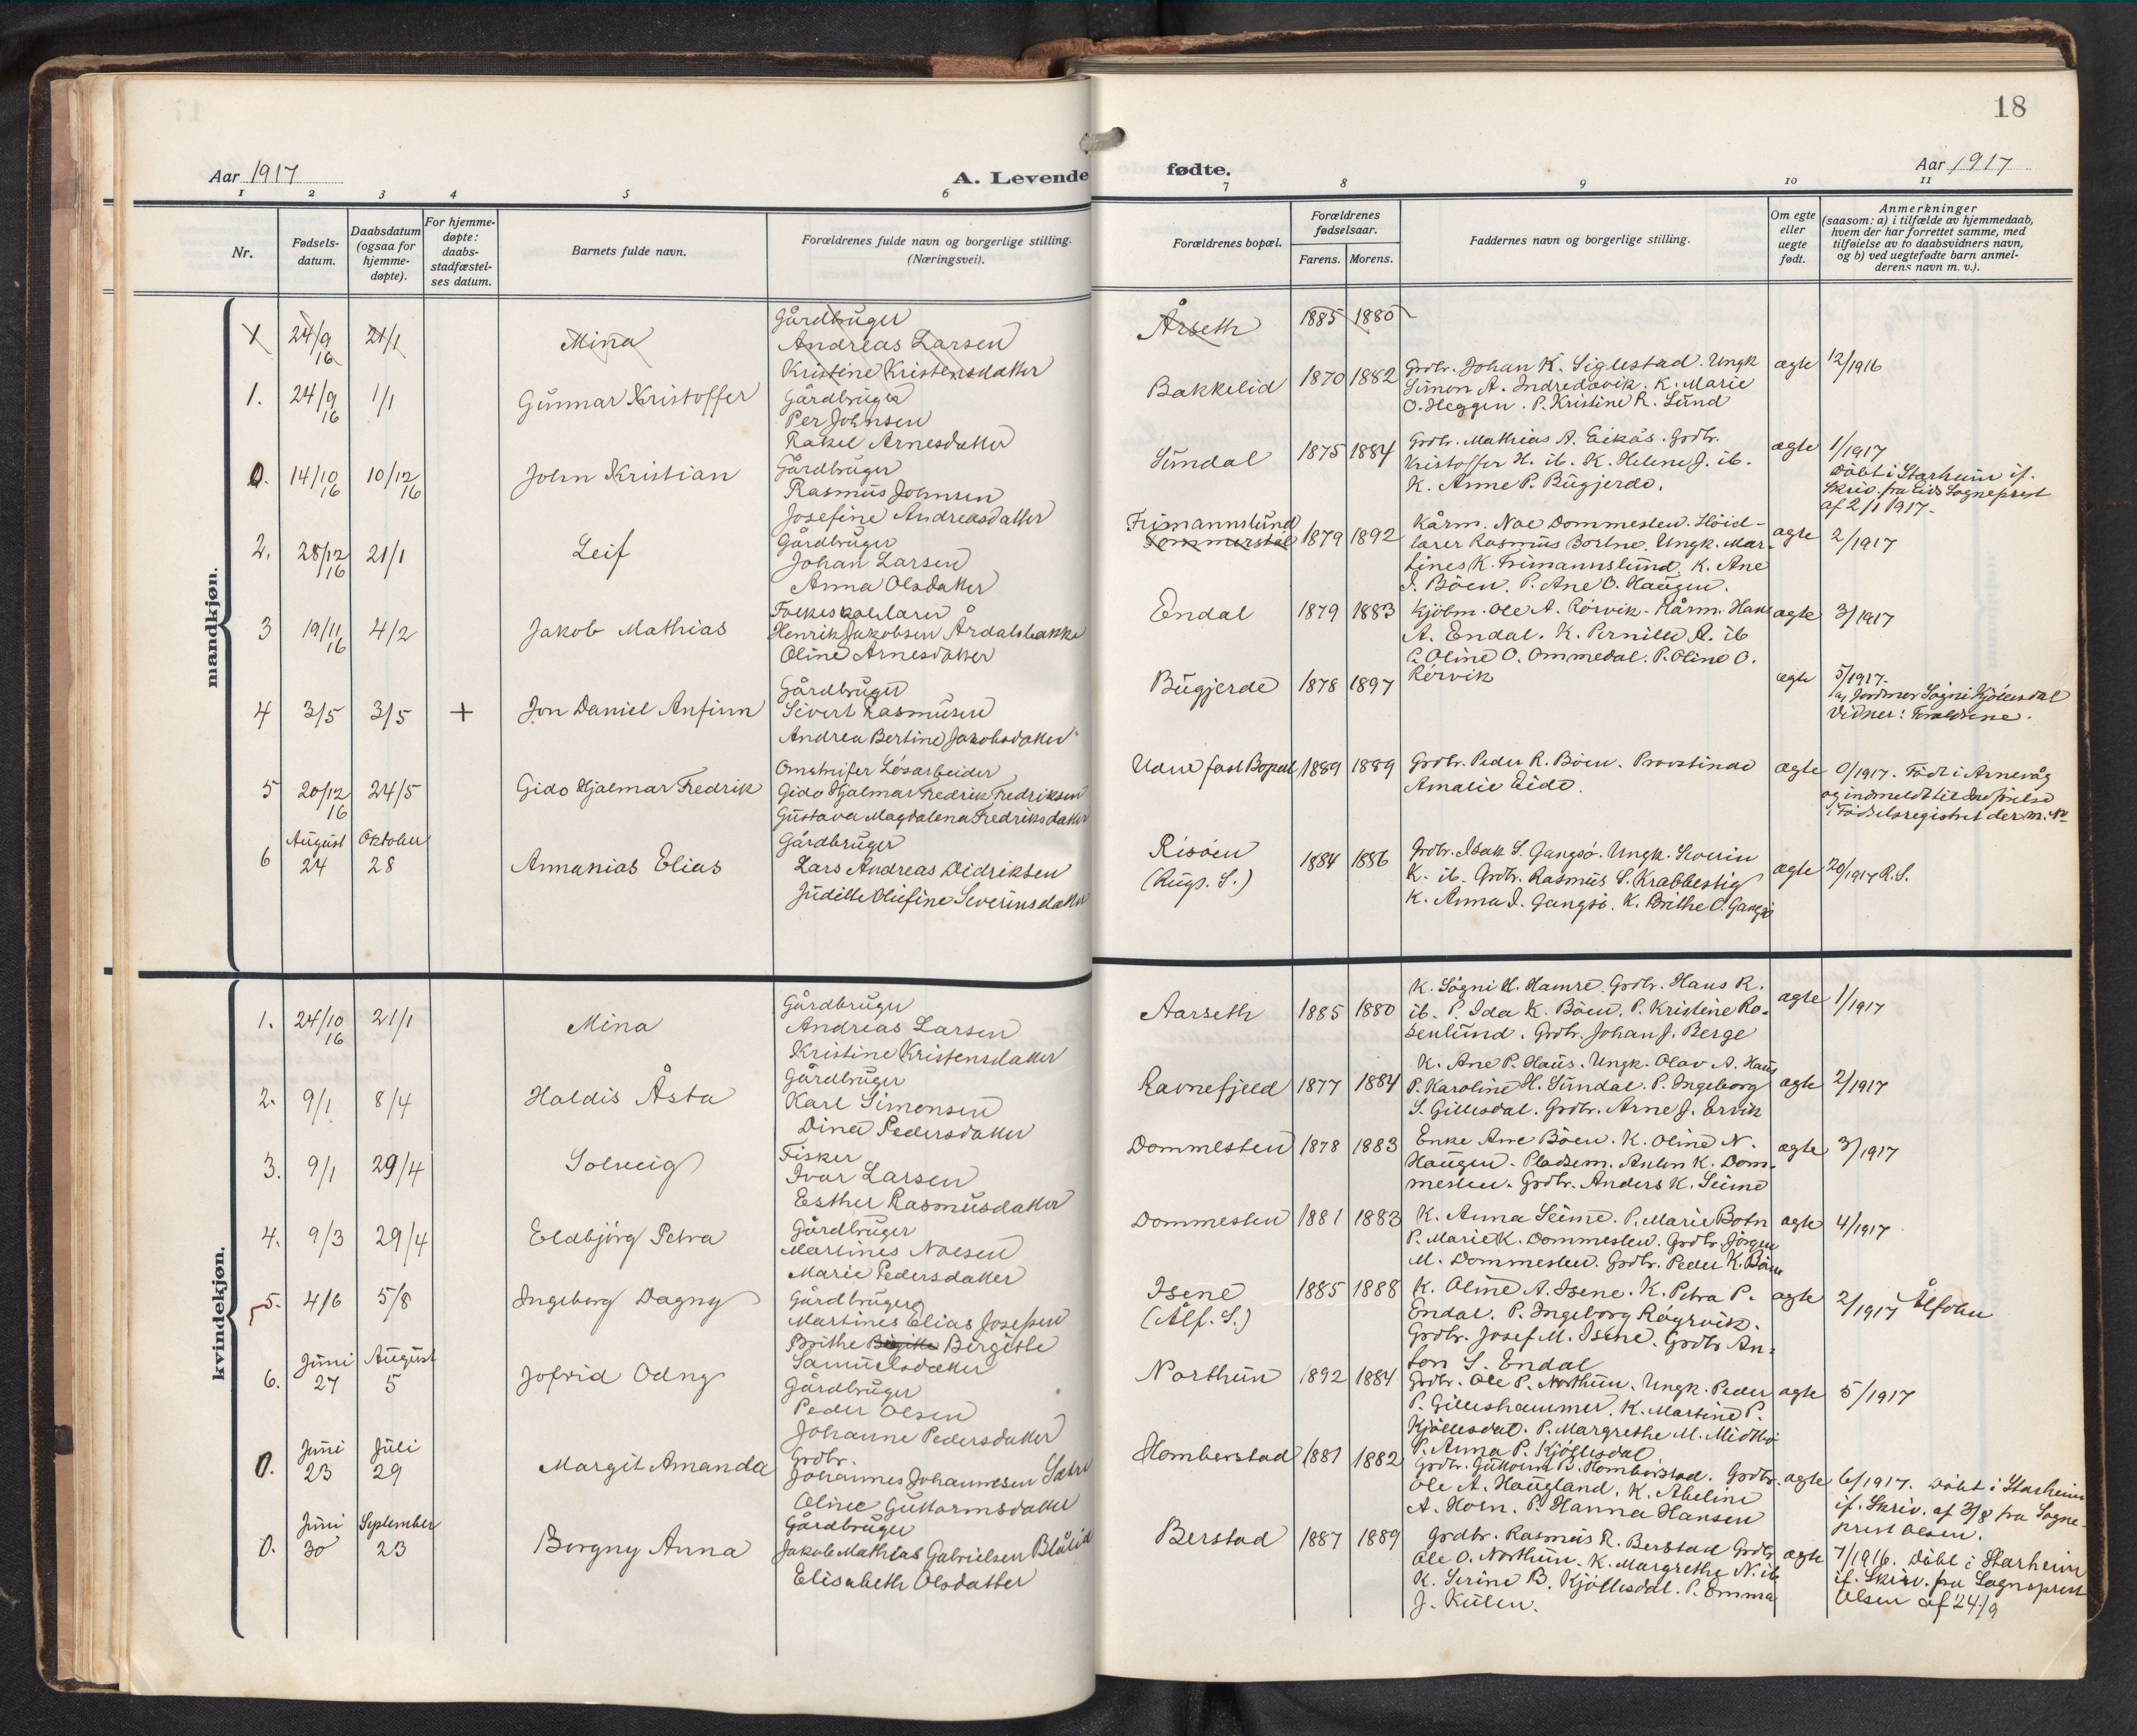 18
Aar 1917
A. Levende
fødte.
Aar 1917
1 2 3 4 5 6
7 8 9 10 11
Nr.
Fødsels-
datum.
Daabsdatum
(ogsaa for
hjemme-
døpte).
For hjemme-
døpte:
daabs-
stadfæstel-
ses datum.
Barnets fulde navn.
Forældrenes fulde navn og borgerlige stilling.
(Næringsvei).
Forældrenes bopæl.
Forældrenes
fødselsaar.
Farens. Morens.
Faddernes navn og borgerlige stilling.
Om egte
eller
uegte
født.
Anmerkninger
(saasom: a) i tilfælde av hjemmedaab,
hvem der har forrettet samme, med
tilføielse av to daabsvidners navn,
og b) ved uegtefødte barn anmel-
derens navn m. v.).
mandkjøn.
1 24/9 16 21/1 Mina
Gårdbruger
Andreas Larsen
Kristine Kristensdatter
Årseth 1885 1880
1. 24/9 16 1/1 Gunnar Kristoffer
Gårdbruger
Per Johnsen
Rakel Arnesdatter
Bakkelid 1870 1882
Grdbr. Johan K. Siglestad. Ungk
Simon A. Indredavik. K. Marie
O. Heggen. P. Kristine R. Lund
ægte 12/1916
0. 14/10 16 10/12 16 John Kristian
Gårdbruger
Rasmus Johnsen
Josefine Andreasdatter
Sundal 1875 1884
Grdbr. Mathias A. Eikås. Grdbr.
Kristoffer H. ib. K. Helene J. ib.
K. Anne P. Bugjerde.
ægte 1/1917
Döbt i Starheim if.
Skriv. fra Eids Sogneprest
af 2/1 1917.
2. 28/12 16 21/1 Leif
Gårdbruger
Johan Larsen
Anna Olsdatter
Frimannslund
1879 1892
Kårm. Noe Dommesten.
Rasmus Ungk. Mar-
tines K. Frimannslund. K. Ane
J. Böen. P. Ane O. Haugen.
ægte 2/1917
3 19/11 16 4/2 Jakob Mathias
Folkeskolelærer
Henrik Jakobsen Årdalsbakke
Oline Arnesdatter
Endal 1879 1883
Kjöbm. Ole A. Rörvik. Kårm. Hans
A. Endal. K. Pernille A. ib
P. Oline O. Ommedal. P. Oline O.
Rörvik
ægte 3/1917
4 3/5 3/5 + Jon Daniel Anfinn
Gårdbruger
Sivert Rasmusen
Andrea Bertine Jakobsdatter
Bugjerde 1878 1897
ægte 5/1917.
af Jordmor Sögni Kjöllesdal
Vidner: Forældrene.
5 20/12 16 24/5 Gido Hjalmar Fredrik
Omstreifer Lösarbeider
Gido Hjalmar Fredrik Fredriksen
Gustava Magdalena Fredriksdatter
Uden fast Bopæl 1889 1889
Grdbr. Peder R. Böen. Provstinde
Amalie Eide.
ægte 0/1917. Född i Arnevåg
og indmeldt til Indförelse
i Födselsregistret der
6 August 24 Oktober 28 Annanias Elias
Gårdbruger
Lars Andreas Didriksen
Judithe Olufine Severinsdatter
Risöen
(Rugs. S.)
1884 1886
Grdbr. Isak S. Gangsö. Ungk. Severin
K. ib. Grdbr. Rasmus S. Krabbestig
K. Anna I. Gangsö. K. Brithe O. Gangsö
ægte 20/1917 R.S.
kvindekjøn.
1. 24/10 16 21/1 Mina
Gårdbruger
Andreas Larsen
Kristine Kristensdatter
Aarseth 1885 1880
K. Sögni H. Hamre. Grdbr. Hans R.
ib. P. Ida K. Böen. P. Kristine Ro-
senlund. Grdbr. Johan J. Berge
ægte 1/1917
2. 9/1 8/4 Haldis Åsta
Gårdbruger
Karl Simonsen
Dina Pedersdatter
Ravnefjeld 1877 1884
K. Ane P. Haus. Ungk. Olav A. Haus
P. Karoline H. Sundal. P. Ingeborg
S. Gillesdal. Grdbr. Arne J. Ervik
ægte 2/1917
3. 9/1 29/4 Solveig
Fisker
Ivar Larsen
Esther Rasmusdatter
Dommesten 1878 1883
Enke Ane Böen. K. Oline N.
Haugen. Pladsem. Anton K. Dom-
mesten. Grdbr. Anders K. Seime
ægte 3/1917
4. 9/3 29/4 Eldbjörg Petra
Gårdbruger
Martines Noesen
Marie Pedersdatter
Dommesten 1881 1883
K. Anna Seime. P. Marie Botn
P. Marie K. Dommesten. Grdbr. Jörgen
M. Dommesten. Grdbr. Peder K. Böen
ægte 4/1917
5. 4/6 5/8 Ingeborg Dagny
Gårdbruger
Martines Elias Josefsen
Brithe Birgitte Bergitte
Samuelsdatter
Isene
(Ålf. S.)
1885 1888
K. Oline A. Isene. K. Petra P.
Endal. P. Ingeborg
Grdbr. Josef M. Isene. Grdbr. An-
ton S. Endal
ægte 2/1917 Ålfoten
6. Juni 27 August 5 Jofrid Odny
Gårdbruger
Peder Olsen
Johanne Pedersdatter
Northun 1892 1884
Grdbr. Ole P. Northun. Ungk. Peder
P. Gilleshammer. K. Martine P.
Kjöllesdal. P. Margrethe M. Midthjö
P. Anna P. Kjöllesdal
ægte 5/1917
0. Juni 23 Juli 29 Margit Amanda
Grdbr.
Johannes Johannesen Sætre
Oline Guttormsdatter
Homberstad 1881 1882
Grdbr. Guttorm B. Homberstad. Grdbr.
Ole A. Haugland. K. Abeline
A. Horn. P. Hanna Hansen
ægte 6/1917. Döbt i Starheim
if. Skriv. af 3/8 fra Sogne-
prest Olsen.
0. Juni 30 September 23 Borgny Anna
Gårdbruger
Jakob Mathias Gabrielsen Blålid
Elisabeth Olsdatter
Berstad 1887 1889
Grdbr. Rasmus R. Berstad Grdbr
Ole O. Northun. K. Margrethe N. ib
K. Serine B. Kjöllesdal. P. Emma
J. Kulen.
ægte 7/1916. Döbt i Starheim
if. Skriv. fra Sogneprest
Olsen af 24/9